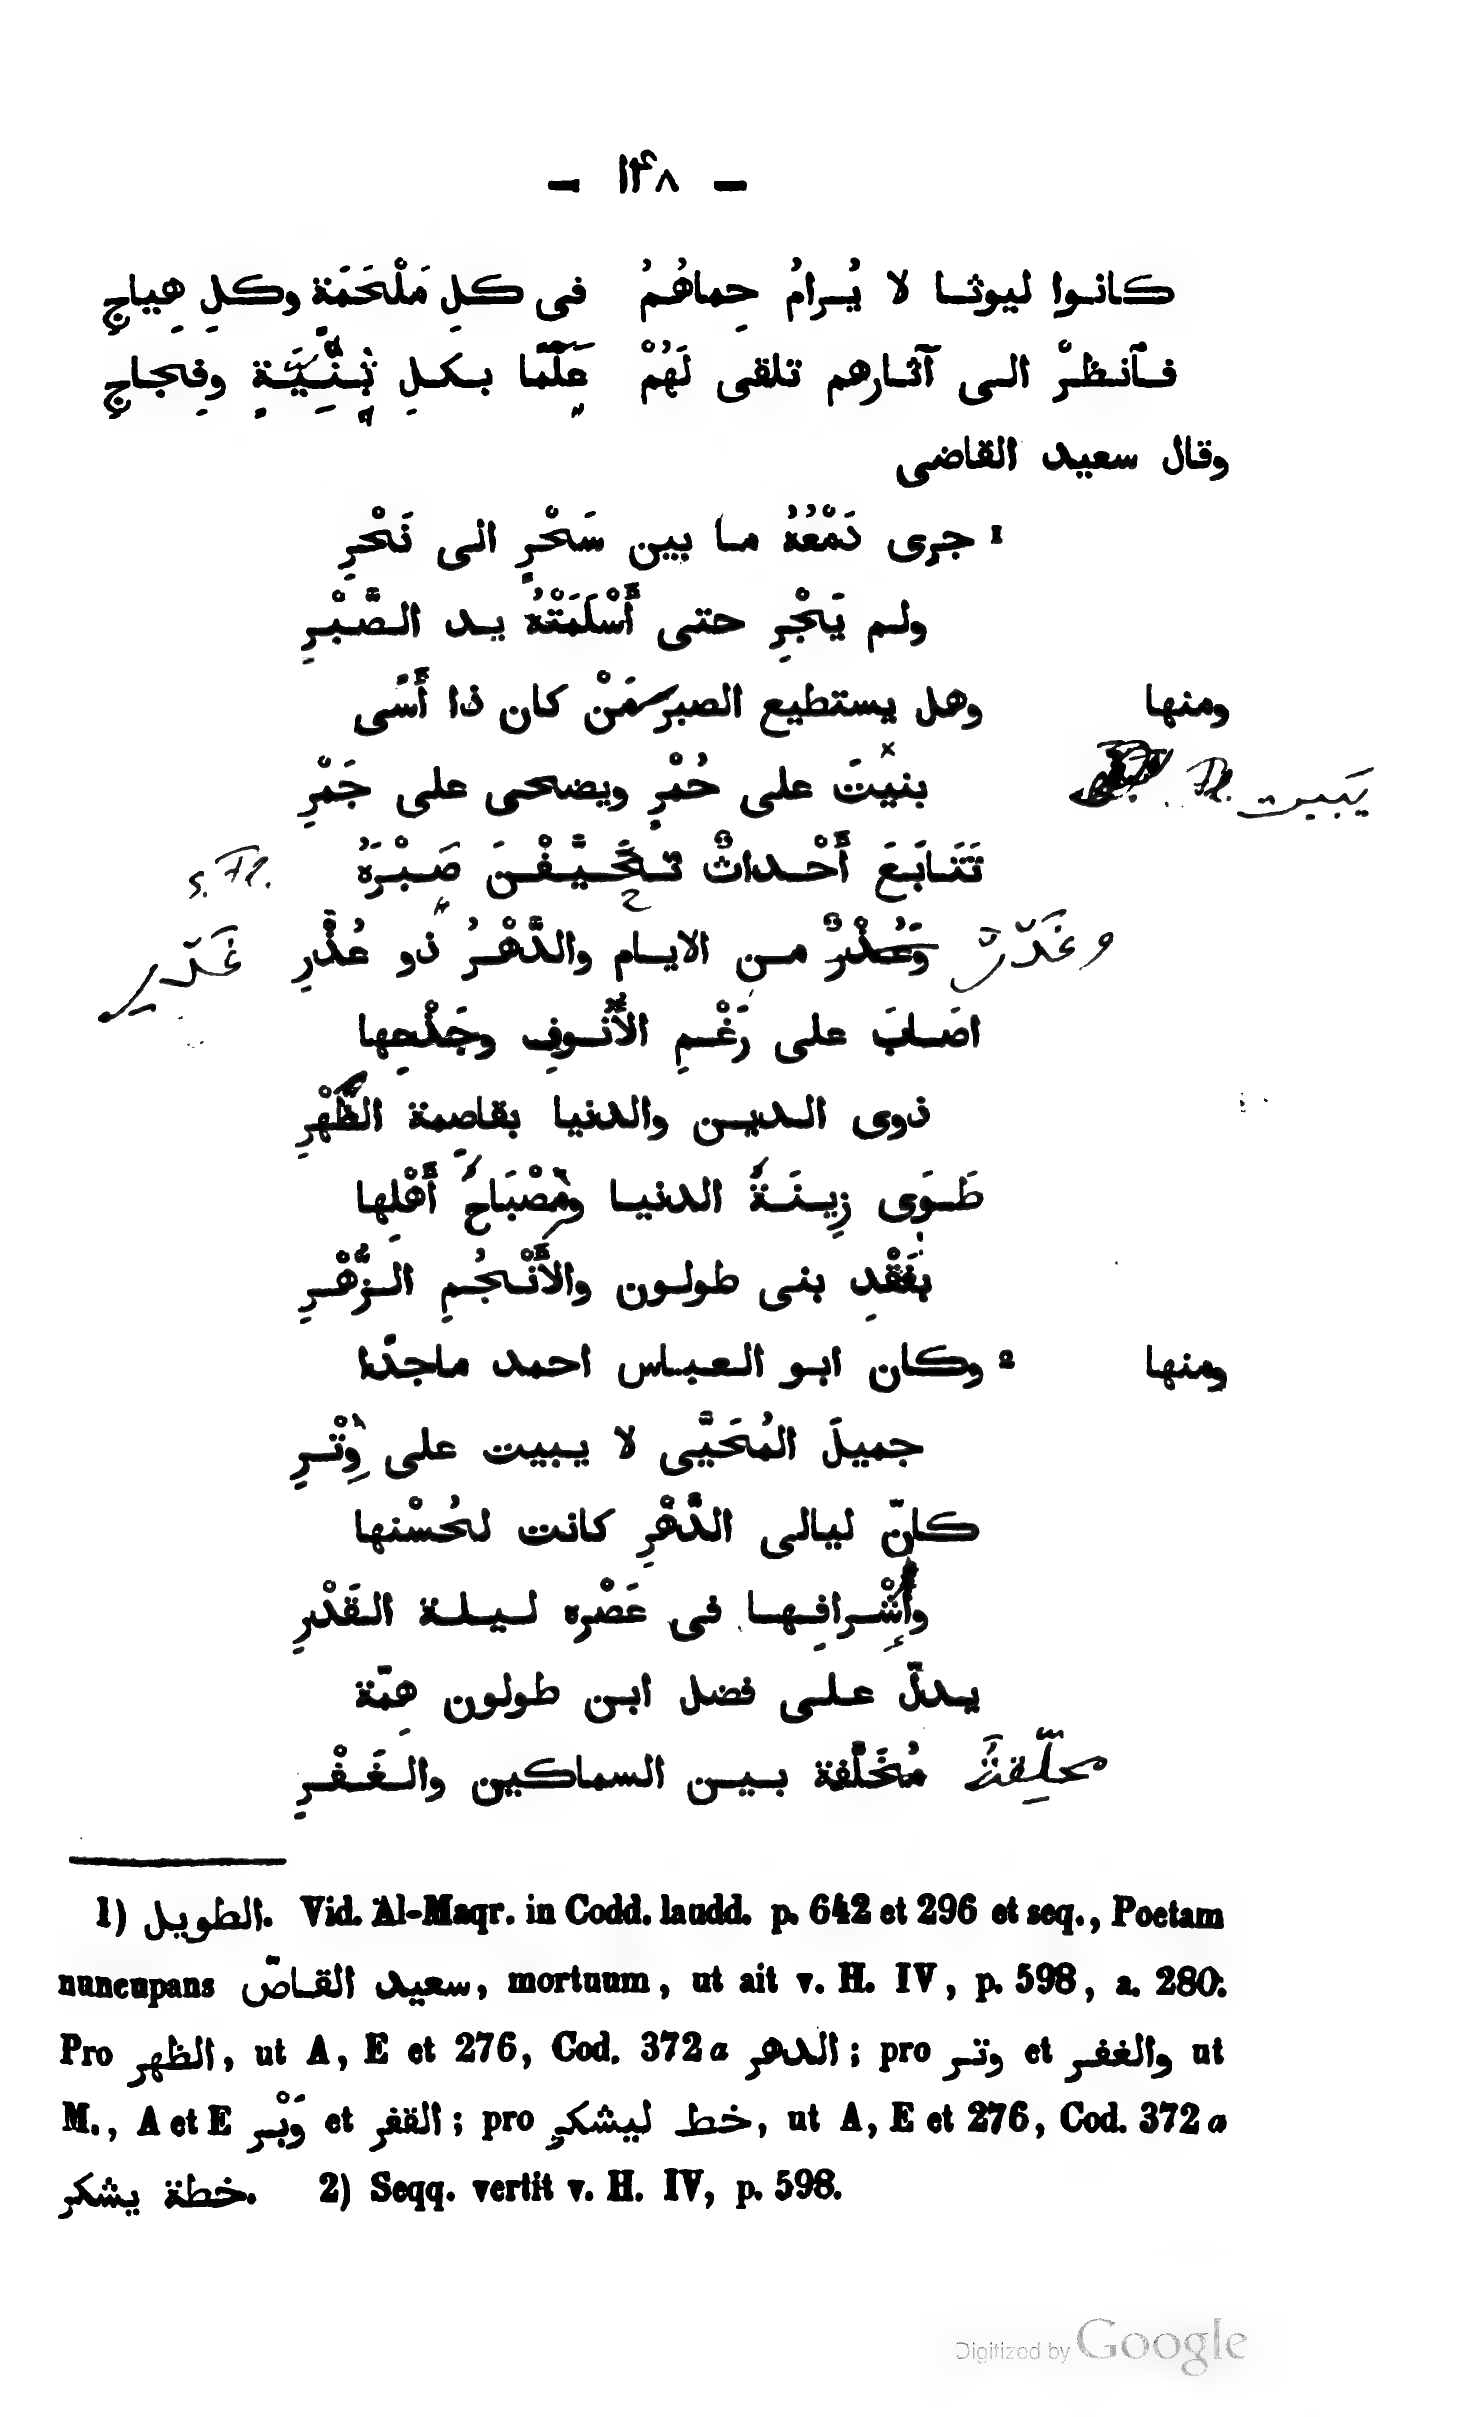 — ١٤٨ —
كانوا ليوثا لا يُرامُ حِماهُمُ في كلِ مَلْحَمَةٍ وكلِ هِياجِ
فآنظرْ الى آثارهم تلقى لَهُمْ عِلّمًا بكلِ ثِنِّيَةٍ وفِجاجِ
وقال سعيد القاضى
1 جرى دَمْعُهُ ما بين سَحْرٍ الى نَحْرِ
ولم يَجْرِ حتى أَسْلَمَتْهُ يد الصَّبْرِ
ومنها وهل يستطيع الصبر مَنْ كان ذا أَسًى
بنيتَ على حُمْرٍ ويضحى على جَمْرِ يَبيت Fl.
تَتَابَعَ أَحْداثٌ تحَيَّفْنَ صَبْرَهُ s. Fl.
وغَدّرٌ وَعُذْرٌ من الايام والدَّهْرُ ذو عُذْرِ غَدّرِ
اصَابَ على رَغْمِ الأُنُوفِ وجَذْحِها
ذوى الدين والدنيا بقاصِمة الظَّهْرِ
طَوَى زِينَةَ الدنيا ومِصْبَاحَ أَهْلِها
بفَقْدِ بنى طولون والأَنْجُمِ الزُّهْرِ
ومنها 2 وكان ابو العباس احمد ماجدًا
جميلَ المُحَيَّى لا يبيت على وِتْرِ
كانّ ليالى الدَّهْرِ كانت لحُسْنها
وإِشْرافِها فى عَصْره ليلة القَدْرِ
يدلّ على فضل ابن طولون هِمّة
محلّقةٌ مُخَلَّفة بين السماكين والغَفْرِ
1) الطويل. Vid. Al-Maqr. in Codd. laudd. p. 642 et 296 et seq., Poetam
nuncupans سعيد القاصّ, mortuum, ut ait v. H. IV, p. 598, a. 280.
Pro الظهر, ut A, E et 276, Cod. 372a الدهر; pro وتر et والغفر ut
M., A et E وَبْر et القفر; pro خط ليشكر, ut A, E et 276, Cod. 372a
خطة يشكر. 2) Seqq. vertit v. H. IV, p. 598.
Digitized by Google